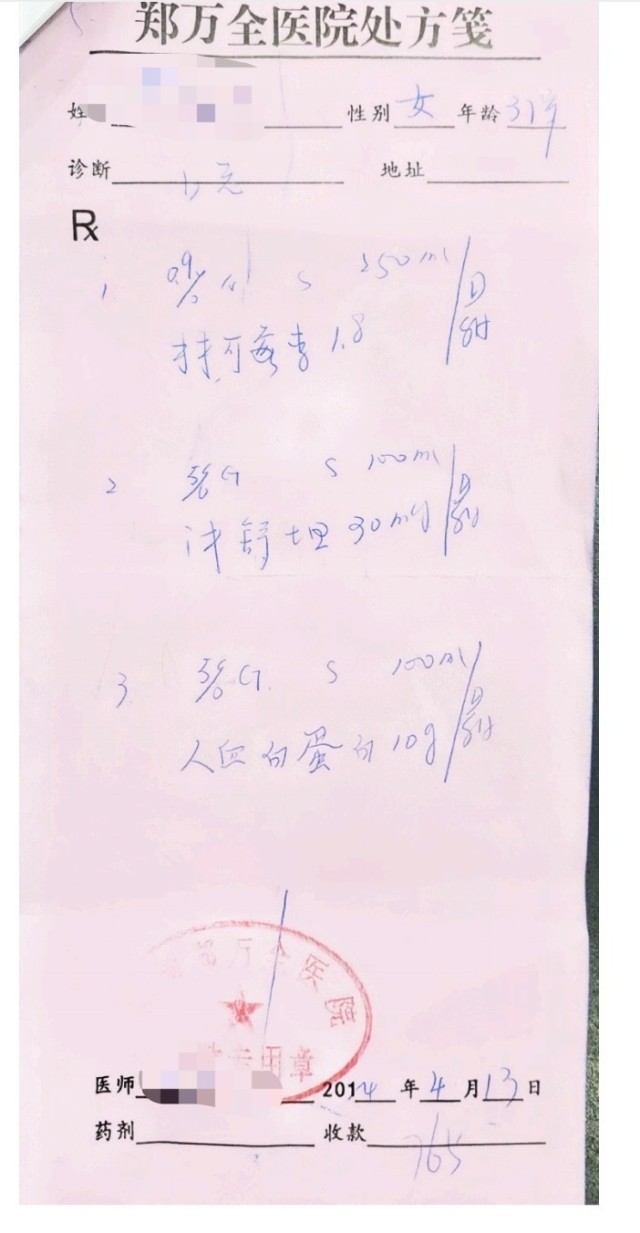 郑万全医院处方笺
姓 性别 女 年龄 31岁
诊断 地址
Rx
1 0.9% N S 250ml / 日
林可霉素 1.8
2 5%G S 100ml / 日
沐舒坦 30mg
3 5%G. S 100ml / 日
人血白蛋白 10g
郑万全医院
专用章
医师 2014 年 4 月 13 日
药剂 收款 765